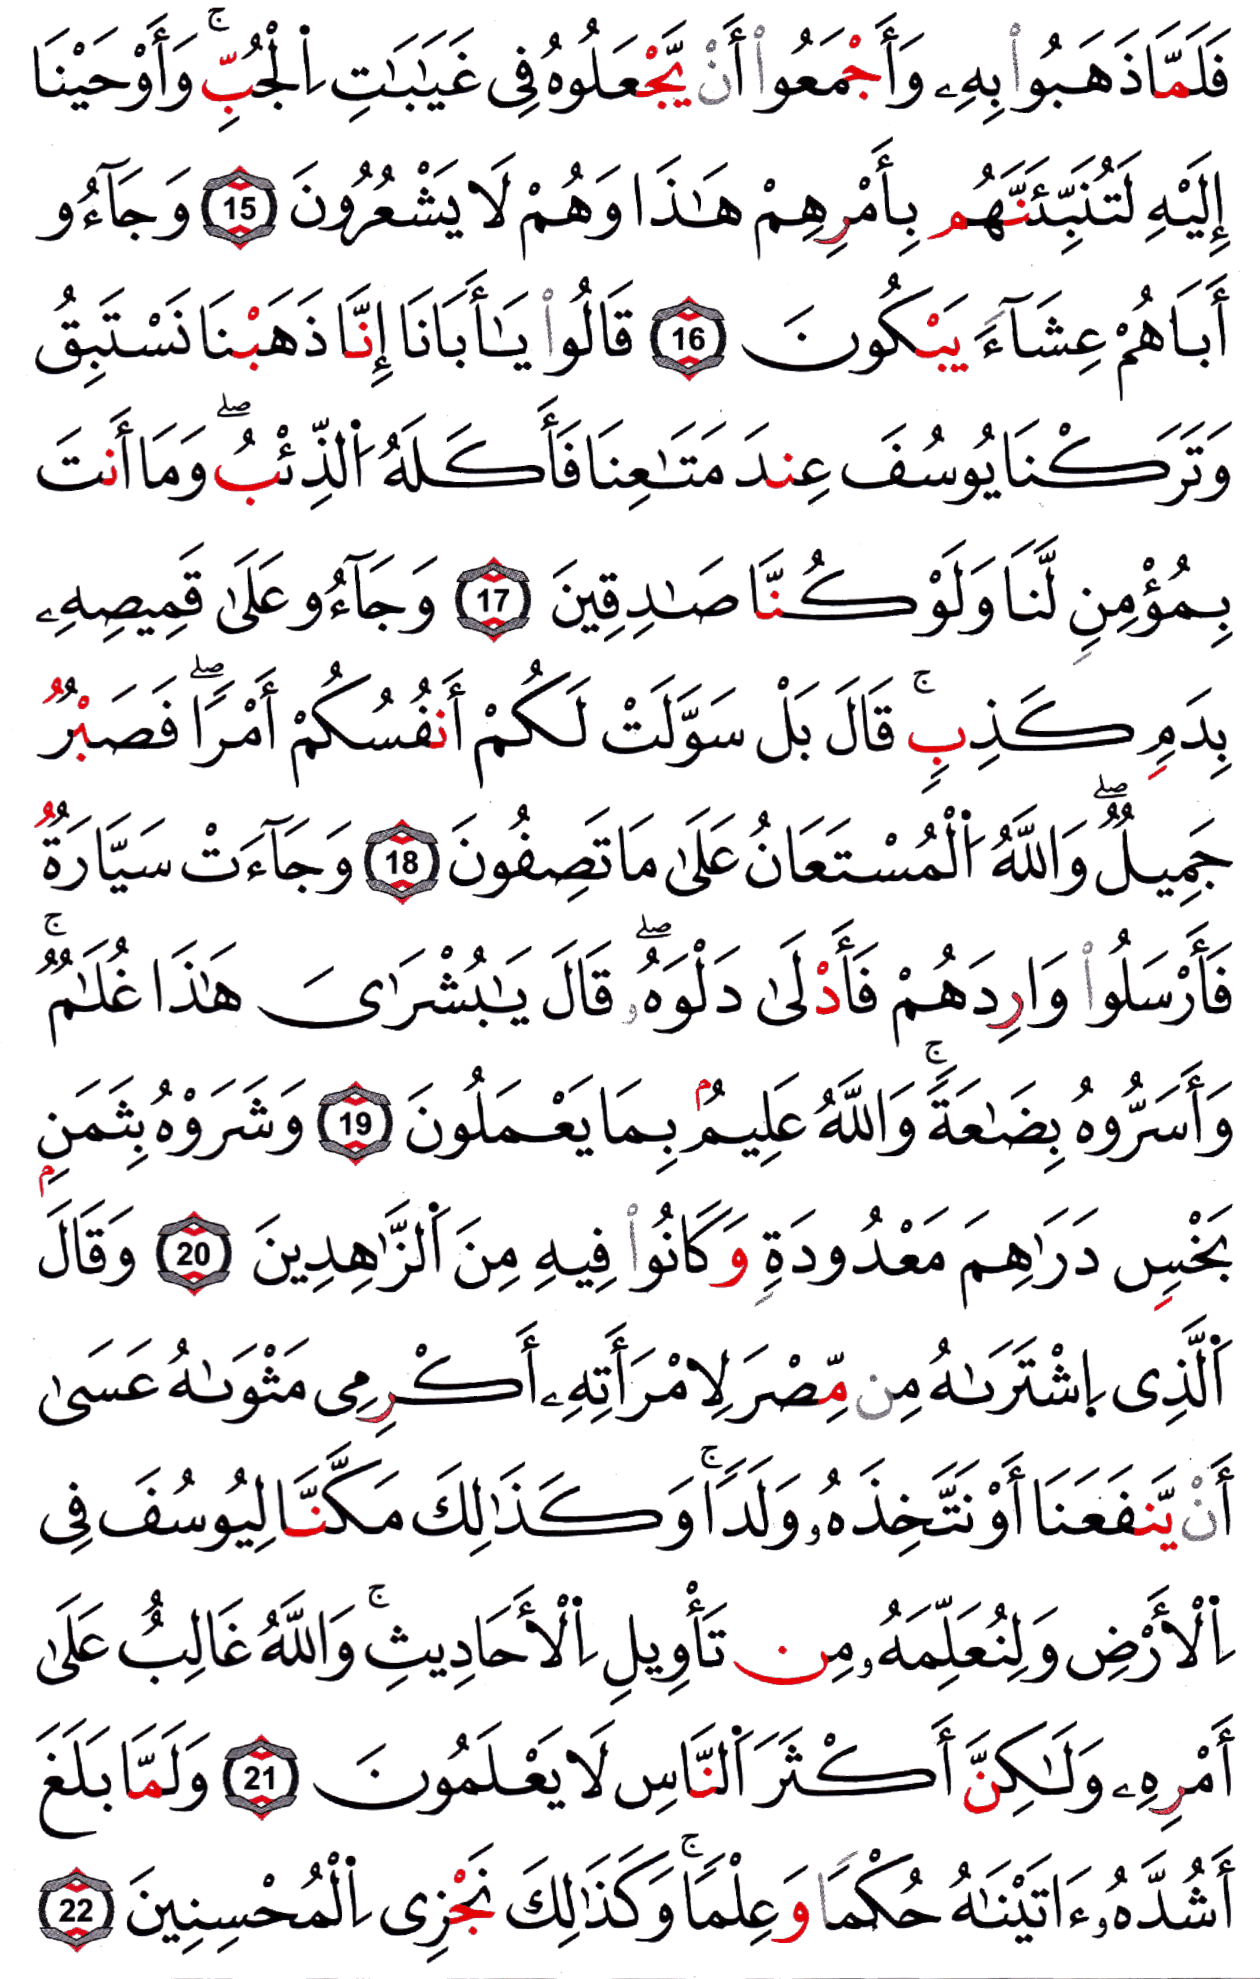 فَلَمَّا ذَهَبُواْ بِهِۦ وَأَجْمَعُواْ أَنْ يَّجْعَلُوهُ فِى غَيَٰبَٰتِ اِ۬لْجُبِّۚ وَأَوْحَيْنَا
إِلَيْهِ لَتُنَبِّئَنَّهُم بِأَمْرِهِمْ هَٰذَا وَهُمْ لَا يَشْعُرُونَ 15 وَجَآءُو
أَبَاهُمْ عِشَآءً يَبْكُونَ 16 قَالُواْ يَٰأَبَانَا إِنَّا ذَهَبْنَا نَسْتَبِقُ
وَتَرَكْنَا يُوسُفَ عِندَ مَتَٰعِنَا فَأَكَلَهُ اُ۬لذِّئْبُۖ وَمَا أَنتَ
بِمُؤْمِنٍ لَّنَا وَلَوْ كُنَّا صَٰدِقِينَ 17 وَجَآءُو عَلَىٰ قَمِيصِهِۦ
بِدَمٍ كَذِبٍۚ قَالَ بَلْ سَوَّلَتْ لَكُمْ أَنفُسُكُمْ أَمْرًاۖ فَصَبْرٌ
جَمِيلٌۖ وَاللَّهُ اُ۬لْمُسْتَعَانُ عَلَىٰ مَا تَصِفُونَ 18 وَجَآءَتْ سَيَّارَةٌ
فَأَرْسَلُواْ وَارِدَهُمْ فَأَدْلَىٰ دَلْوَهُۥۖ قَالَ يَٰبُشْرَٰىَ هَٰذَا غُلَٰمٌۚ
وَأَسَرُّوهُ بِضَٰعَةًۚ وَاللَّهُ عَلِيمٌۢ بِمَا يَعْمَلُونَ 19 وَشَرَوْهُ بِثَمَنٍۭ
بَخْسٍ دَرَٰهِمَ مَعْدُودَةٍ وَكَانُواْ فِيهِ مِنَ اَ۬لزَّٰهِدِينَ 20 وَقَالَ
اَ۬لَّذِى اِ۪شْتَرَىٰهُ مِن مِّصْرَ لِامْرَأَتِهِۦ أَكْرِمِى مَثْوَىٰهُ عَسَىٰ
أَنْ يَّنفَعَنَا أَوْ نَتَّخِذَهُۥ وَلَدًاۚ وَكَذَٰلِكَ مَكَّنَّا لِيُوسُفَ فِى
اِ۬لْأَرْضِ وَلِنُعَلِّمَهُۥ مِن تَأْوِيلِ اِ۬لْأَحَادِيثِۚ وَاللَّهُ غَالِبٌ عَلَىٰ
أَمْرِهِۦ وَلَٰكِنَّ أَكْثَرَ اَ۬لنَّاسِ لَا يَعْلَمُونَ 21 وَلَمَّا بَلَغَ
أَشُدَّهُۥ ءَاتَيْنَٰهُ حُكْمًا وَعِلْمًاۚ وَكَذَٰلِكَ نَجْزِى اِ۬لْمُحْسِنِينَ 22